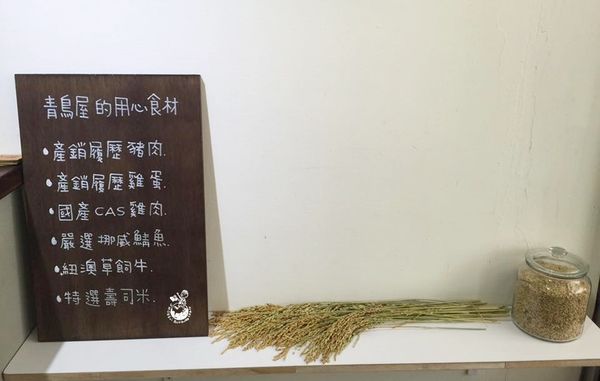 青鳥屋的用心食材
•產銷履歷豬肉.
•產銷履歷雞蛋.
•國產CAS雞肉.
•嚴選挪威鯖魚.
•紐澳草飼牛.
•特選壽司米.